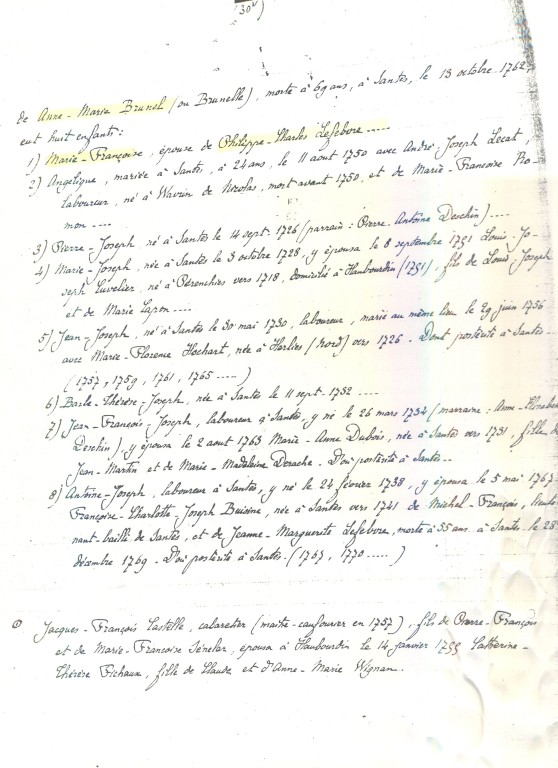 (30v)
de Anne-Marie Brunel (ou Brunelle), morte à 69 ans, à Santes, le 13 octobre 1762,
eut huit enfants :
1) Marie-Françoise, épouse de Philippe-Charles Lefebvre .....
2) Angélique, mariée à Santes, à 24 ans, le 11 aout 1750 avec André-Joseph Lecat,
laboureur, né à Wavrin de Nicolas, mort avant 1750, et de Marie-Francoise Ro-
mon ....
3) Pierre-Joseph, né à Santes le 14 sept. 1726 (parrain : Pierre-Antoine Deschin) ....
4) Marie-Joseph, née à Santes le 3 octobre 1728, y épousa le 8 septembre 1751 Louis-Jo-
seph Cuvelier, né à Pérenchies vers 1718, domicilié à Haubourdin (1751), fils de Louis-Joseph
et de Marie Lapon ....
5) Jean-Joseph, né à Santes le 30 mai 1730, laboureur, marié au même lieu le 29 juin 1756
avec Marie-Florence Hochart, née à Herlies (Nord) vers 1726. Dont postérité à Santes..
(1757, 1759, 1761, 1765 .....)
6) Barbe-Thérèse-Joseph, née à Santes le 11 sept. 1732 ....
7) Jean-François-Joseph, laboureur à Santes, y né le 26 mars 1734 (marraine : Anne-
Deschin), y épousa le 2 aout 1763 Marie-Anne Dubois, née à Santes vers 1731, fille de
Jean-Martin et de Marie-Madeleine Derache. D'où postérité à Santes..
8) Antoine-Joseph, laboureur à Santes, y né le 24 février 1738, y épousa le 5 mai 1767
Françoise-Charlotte-Joseph Buisine, née à Santes vers 1741 de Michel-François, lieute-
nant-bailli de Santes, et de Jeanne-Marguerite Lefebvre, morte à 55 ans à Santes le 28
décembre 1769. D'où postérité à Santes. (1767, 1770 .....)
Jacques-François Castelle, cabaretier (maître-chaufournier en 1757), fils de Pierre-François
et de Marie-Francoise Sénelar, épousa à Haubourdin le 14 janvier 1755 Catherine-
Thérèse Fichaux, fille de Claude et d'Anne-Marie Wignan.